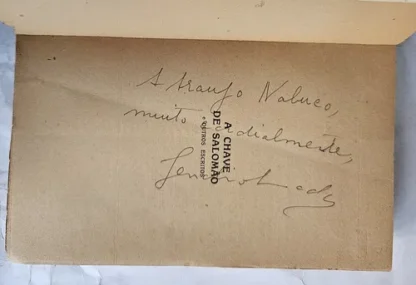 A Araujo Nabuco,
muito cordialmente,
A CHAVE
DE SALOMÃO
E OUTROS ESCRITOS